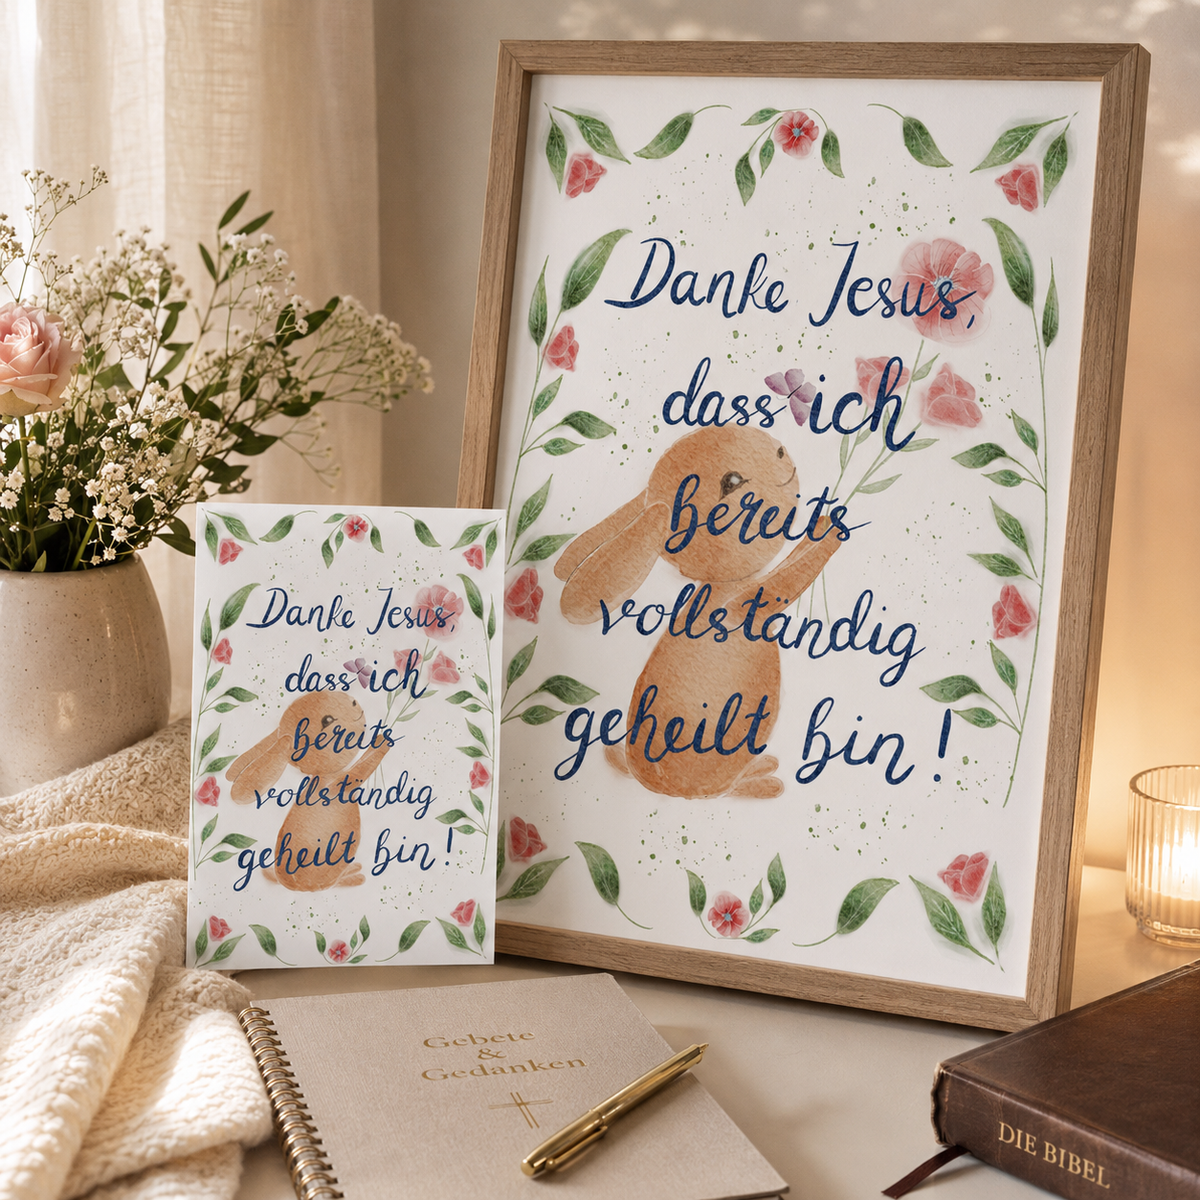 Danke Jesus,
dass ich
bereits
vollständig
geheilt bin!
Danke Jesus,
dass ich
bereits
vollständig
geheilt bin!
Gebete
&
Gedanken
DIE BIBEL